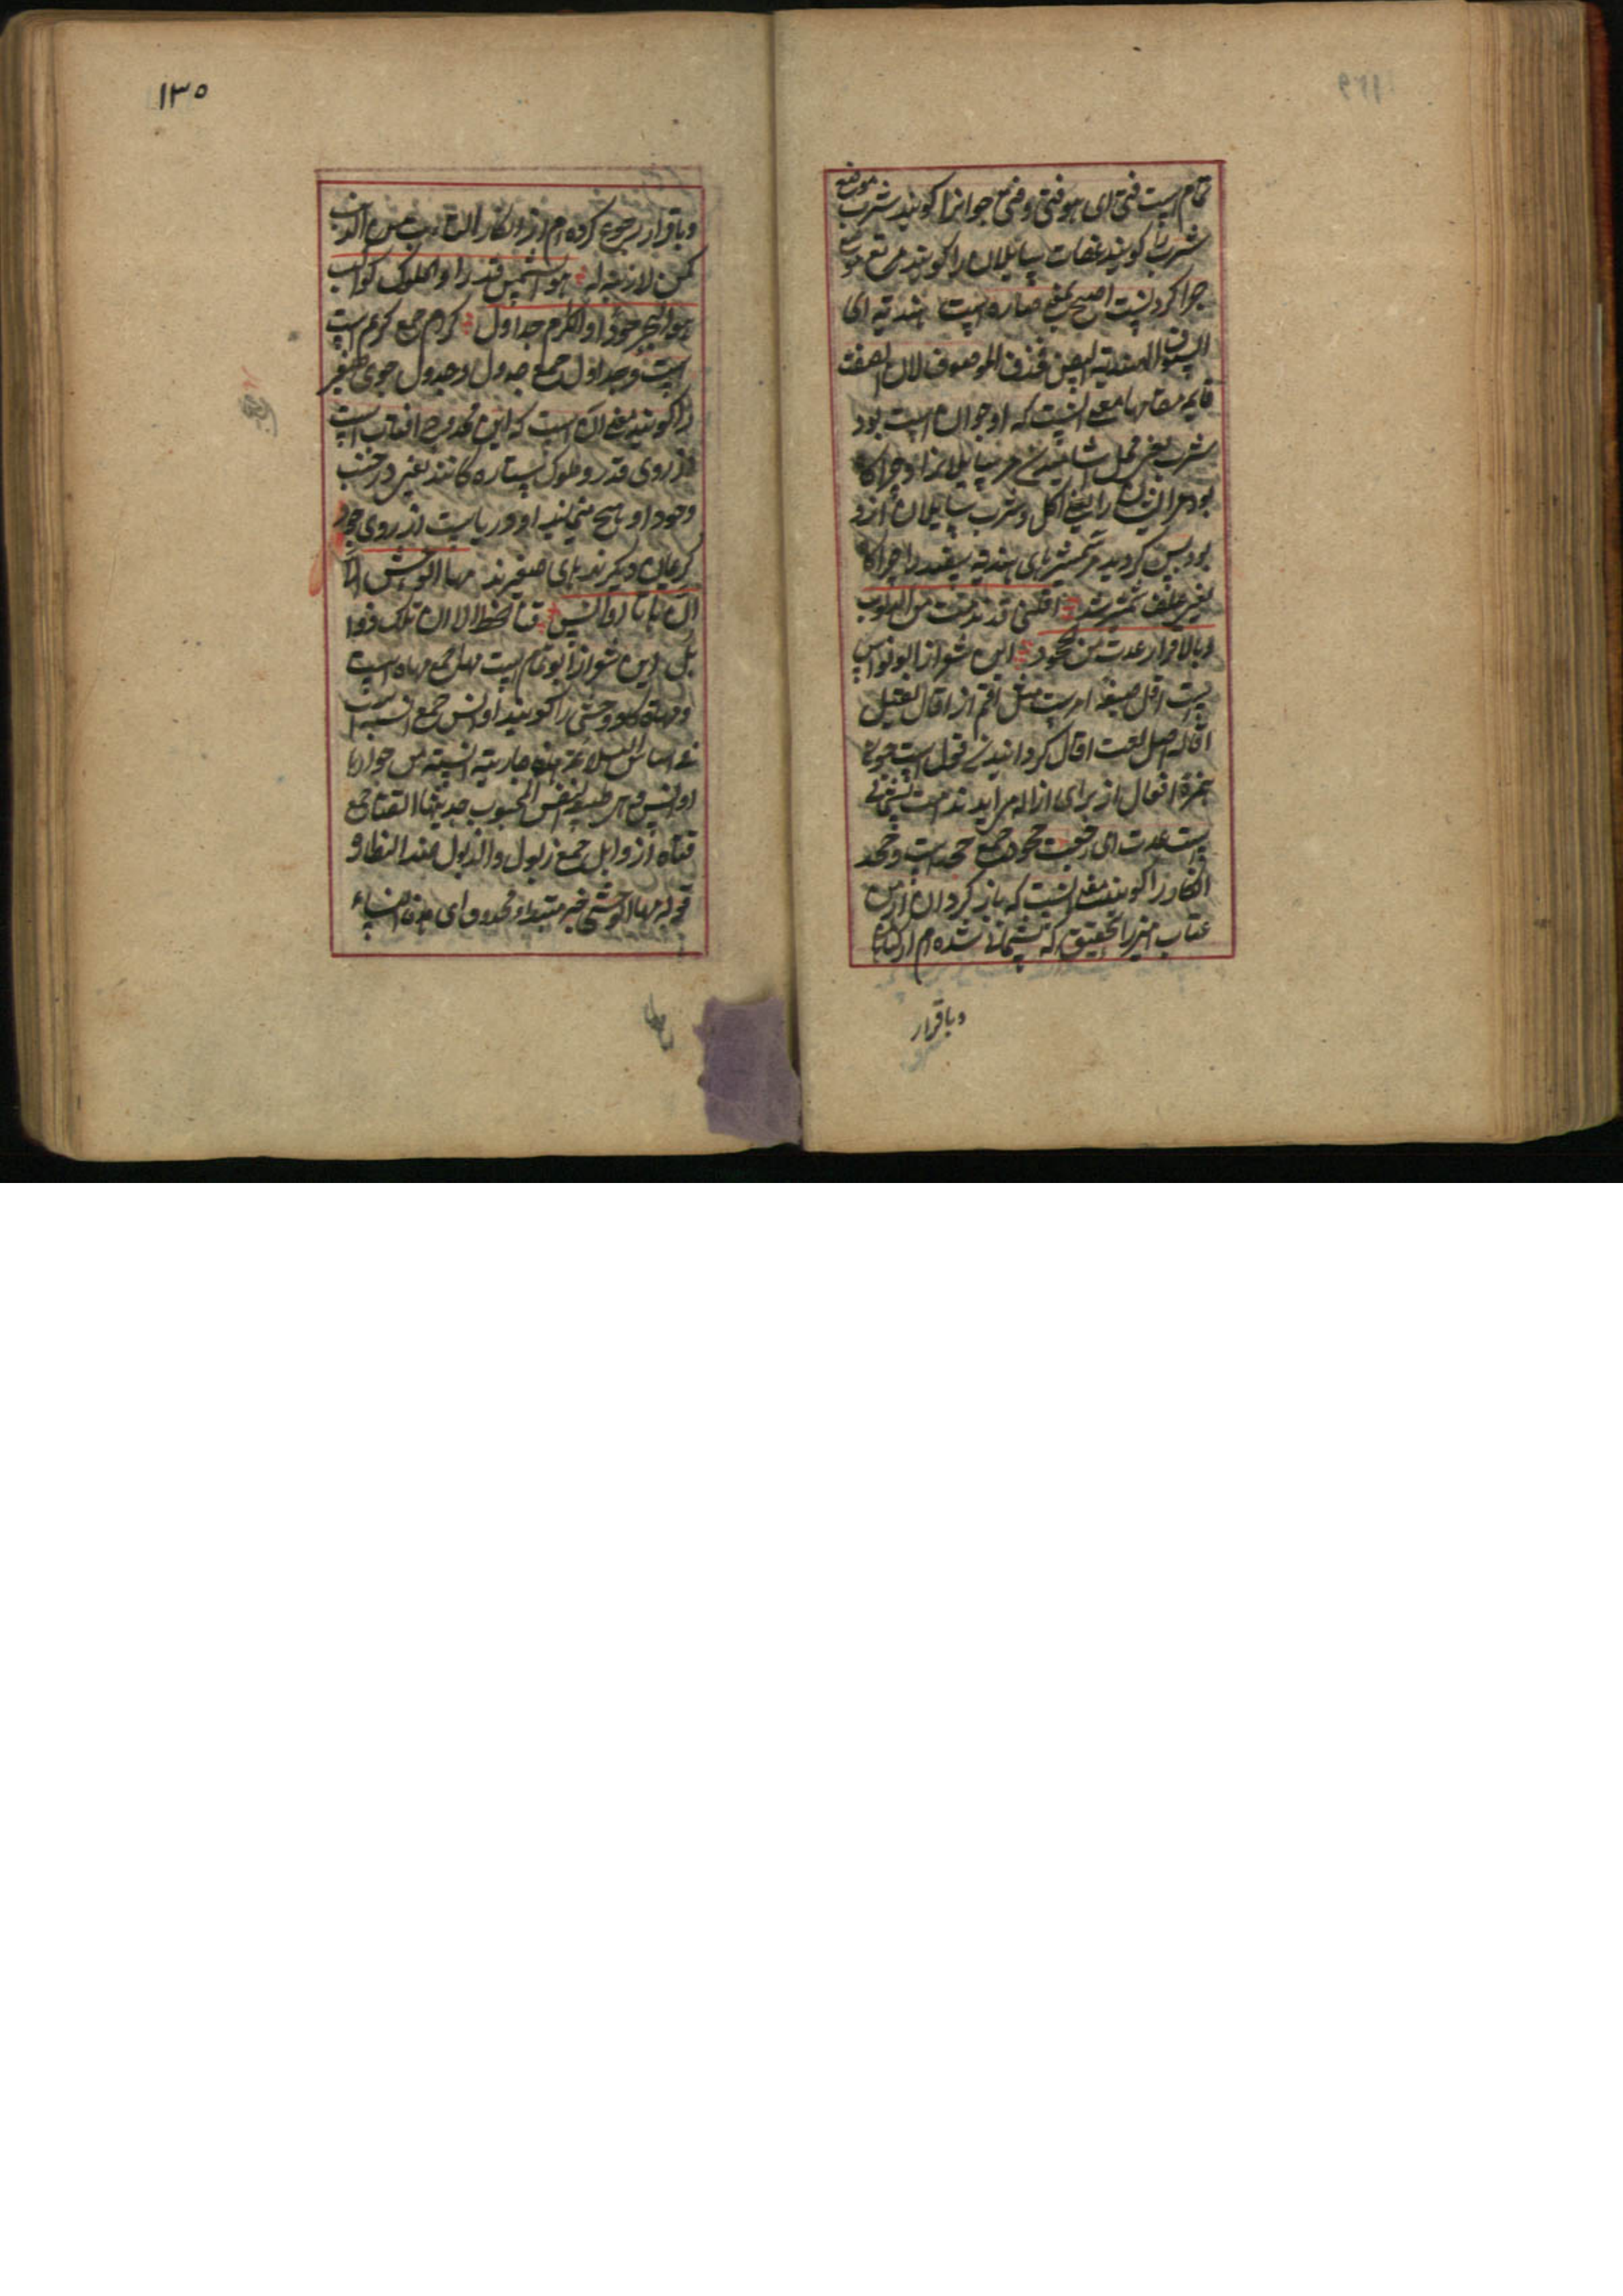 تمام است فتی ای هو فتی و فتی جوانرا کویند شرب موضع
شرب را کویند عفات سایلان را کویند مرتع موضع
چرا کردنست اصبح بمعنی صار است هندیة ای
السیوف الهندیة البیض فحذف الموصوف لان الصفت
قایم مقامها معنی انست که او جوان است بود
شرب یعنی محل اشامیدن مر سایلانرا و چراکاه
بود مر ایشان را یعنی اکل و شرب سایلان ازو
بود پس کردید مر شمشیرهای هندیه سفید را چراکاه
یعنی علف شمشیر شد اقلنی قد ندمت من الذنوب
وبالاقرار عدت من الجحود این شعر از ابو نواس
است اقل صیغه امرست مثل اقم از اقال یقیل
اقاله اصل لغت اقال کردانیدن قول است چون
همزه افعال از برای ازاله می اید ندمت پشیمانی
است عدت ای رجعت جحود جمع جحد است و جحد
انکار را کویند معنی انست که باز کردان از من
عتاب امیر را بتحقیق که پشیمان شده ام از کناه
وباقرار
۱۳۰
وباقرار رجوع کرده ام از انکار التایب من الذنب
کمن لا ذنب له هو الشمس قدرا والملوک کواکب
هو البحر جودا والکرام جداول کرام جمع کریم است
است و جداول جمع جدول و جدول جوی صغیر
را کویند معنی ان است که این ممدوح افتاب است
از روی قدر و ملوک ستاره کانند یعنی در جنب
وجود او هیچ می نمایند او دریاست از روی جود
کریمان دیکر نهرهای صغیرند مها الوحش الا
ان هاتا اوانس قنا الخط الا ان تلک ذوا
بل این شعر از ابو تمام است مها جمع مهاة است
و مهاة کاو وحشی را کویند اوانس جمع انسه است
فی اساس البلاغة هذه جاریة انسة من جوار
اوانس وهی طیبة النفس المحبوب حدیثها القنا جمع
قناة ذوابل جمع ذبول والذبول ضد النظارة
قوله مها الوحش خبر مبتداء محذوف ای هن النساء